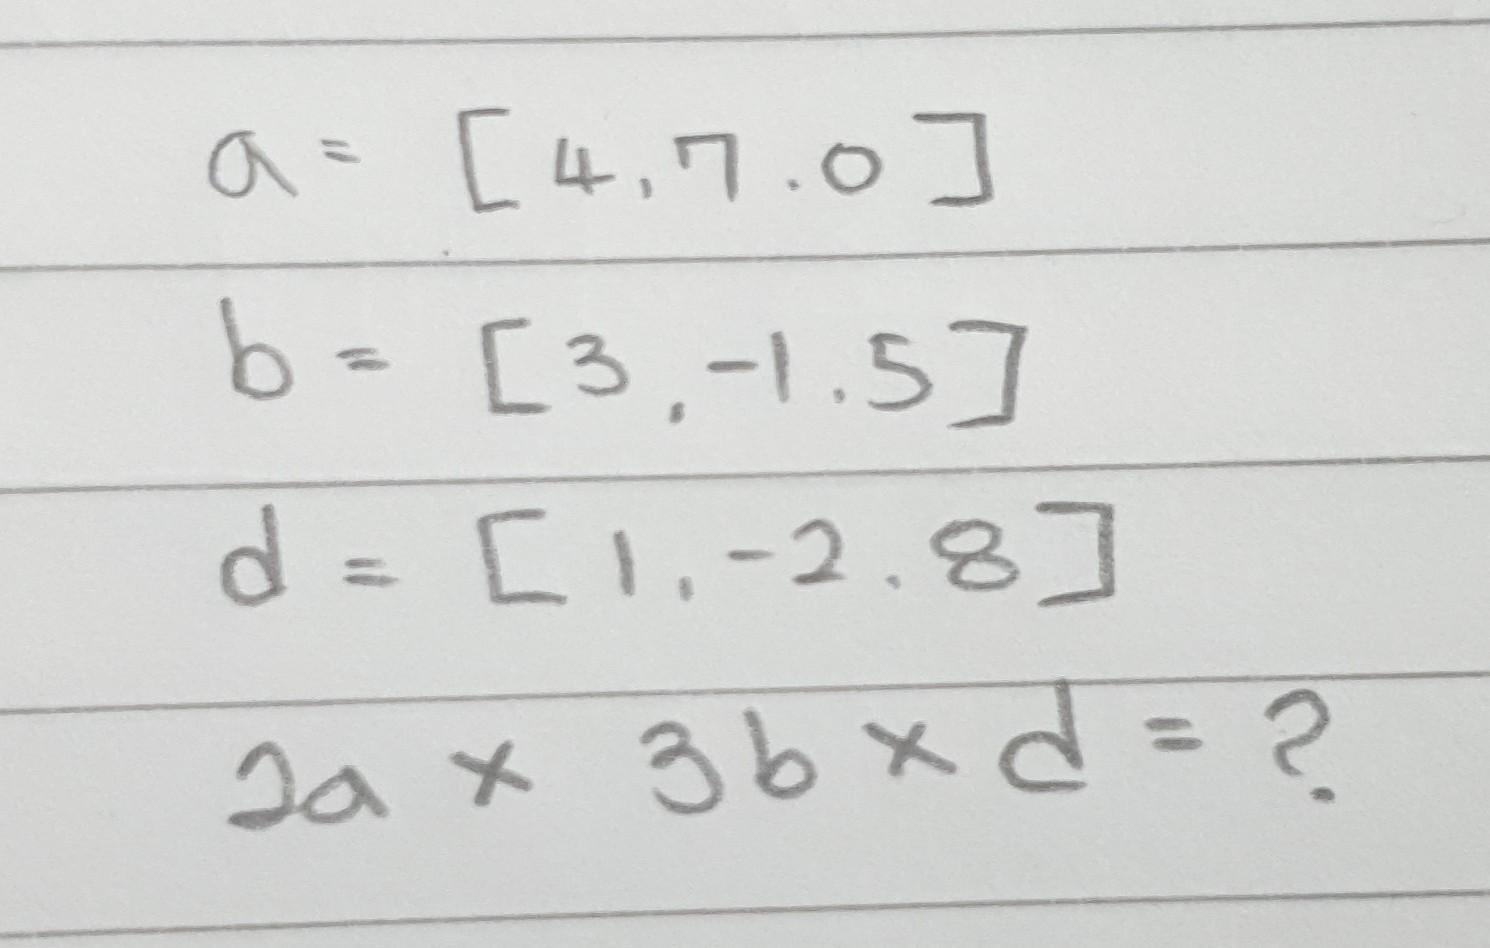 a = [4, 7.0]
b = [3, -1.5]
d = [1, -2.8]
2a x 3b x d = ?